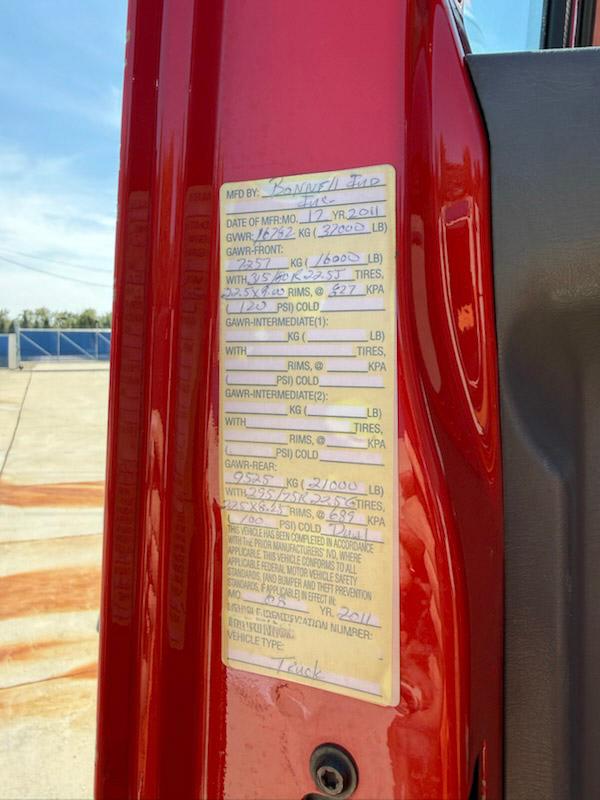 MFD BY: BONNELL IND
Inc.
DATE OF MFR:MO. 12 YR. 2011
GVWR: 16782 KG ( 37000 LB)
GAWR-FRONT:
7257 KG ( 16000 LB)
WITH 315/80R22.5J TIRES,
22.5X9.00 RIMS, @ 827 KPA
( 120 PSI) COLD
GAWR-INTERMEDIATE(1):
KG ( LB)
WITH TIRES,
RIMS, @ KPA
( PSI) COLD
GAWR-INTERMEDIATE(2):
KG ( LB)
WITH TIRES,
RIMS, @ KPA
( PSI) COLD
GAWR-REAR:
9525 KG ( 21000 LB)
WITH 295/75R22.5G TIRES,
22.5X8.25 RIMS, @ 689 KPA
( 100 PSI) COLD Dual
THIS VEHICLE HAS BEEN COMPLETED IN ACCORDANCE
WITH THE PRIOR MANUFACTURERS' IVD, WHERE
APPLICABLE. THIS VEHICLE CONFORMS TO ALL
APPLICABLE FEDERAL MOTOR VEHICLE SAFETY
STANDARDS, [AND BUMPER AND THEFT PREVENTION
STANDARDS, IF APPLICABLE] IN EFFECT IN:
MO. YR. 2011
VEHICLE IDENTIFICATION NUMBER:
VEHICLE TYPE:
Truck